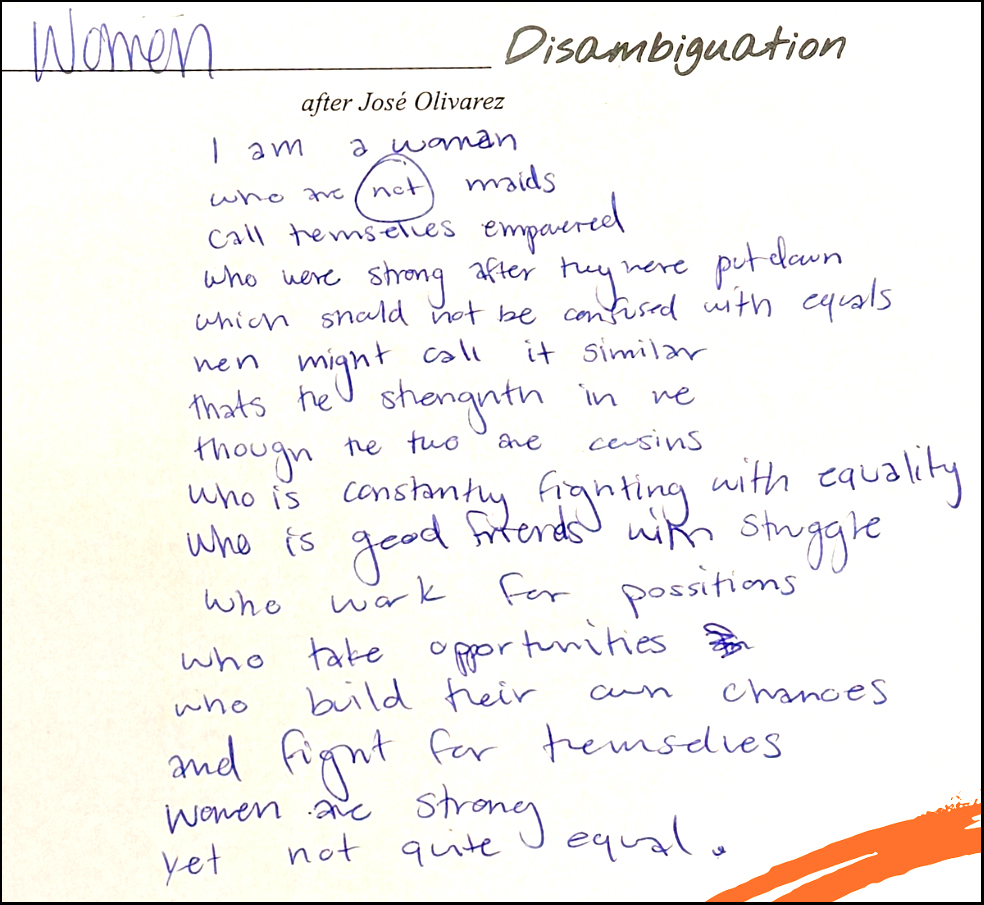 Women Disambiguation
after José Olivarez
I am a woman
who are not maids
call themselves empowered
who were strong after they were put down
which should not be confused with equals
men might call it similar
thats the strengnth in me
though the two are cousins
who is constantly fighting with equality
who is good friends with struggle
who work for possitions
who take opportunities
who build their own chances
and fight for themselves
women are strong
yet not quite equal.